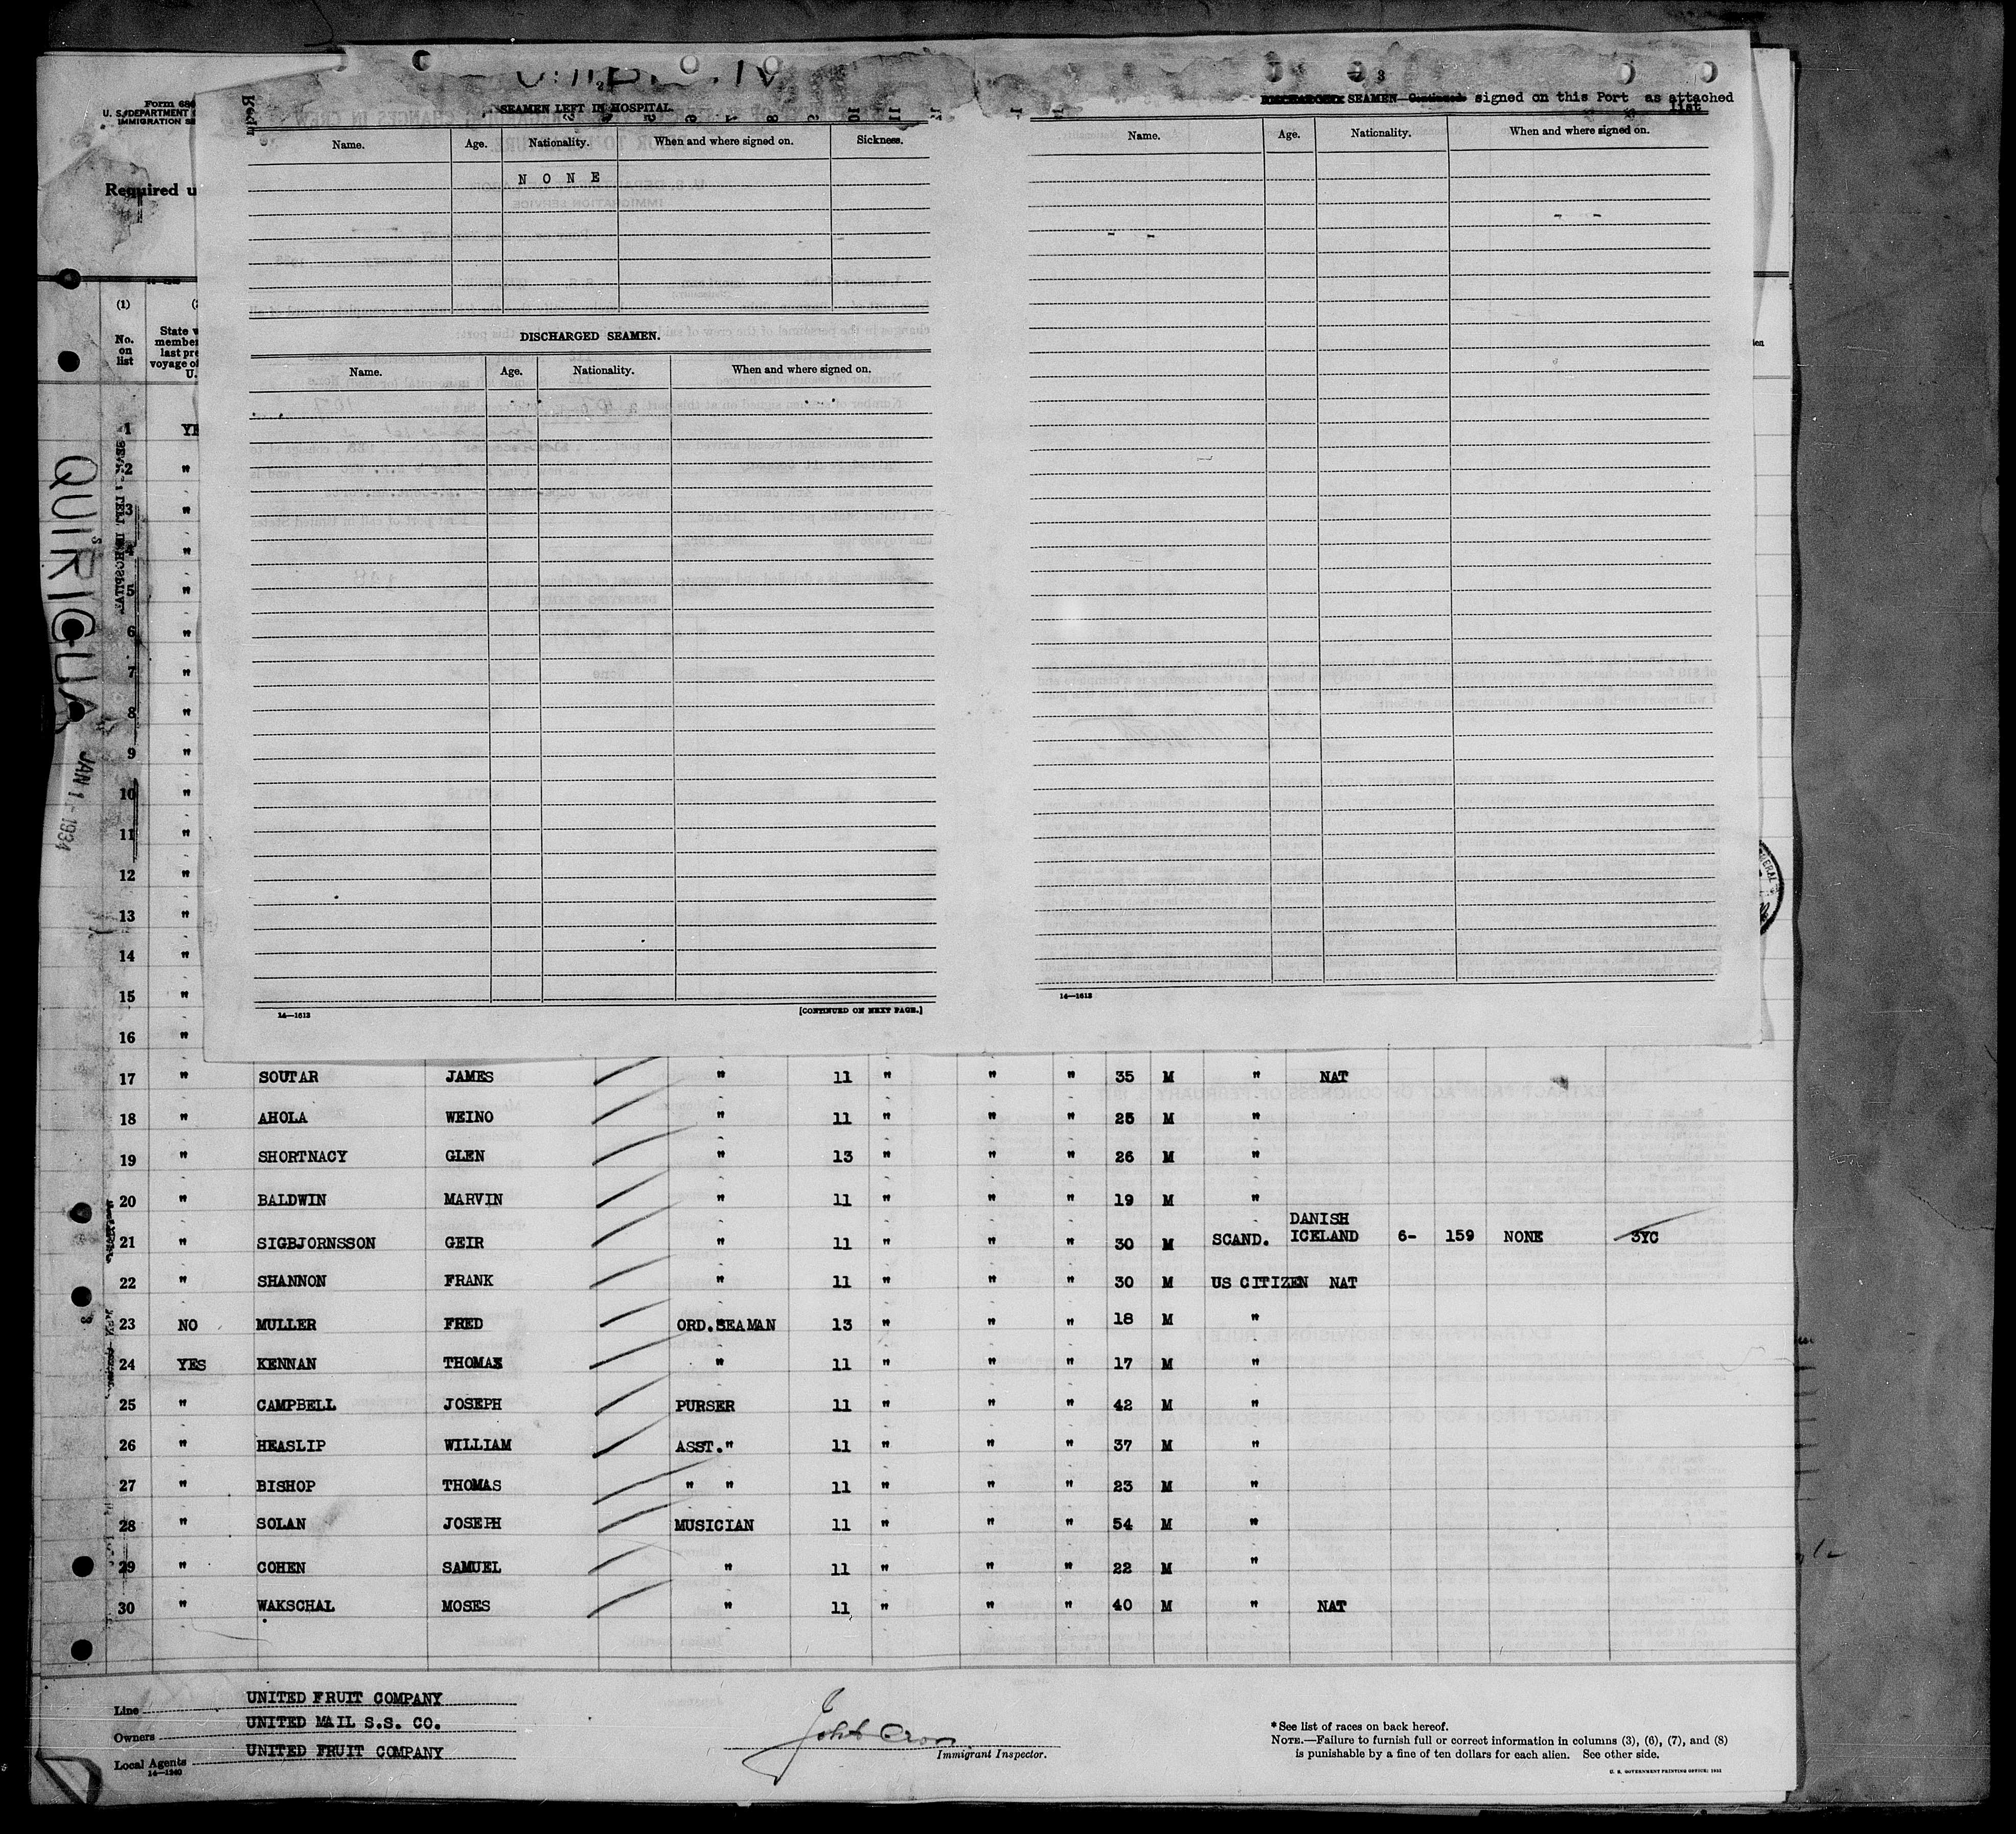 Form 68
U. S. DEPARTMENT
IMMIGRATION SE
Required u
2
SEAMEN LEFT IN HOSPITAL
Name. Age. Nationality. When and where signed on. Sickness.
N O N E
DISCHARGED SEAMEN.
Name. Age. Nationality. When and where signed on.
14—1613
[CONTINUED ON NEXT PAGE.]
3
SEAMEN Continued signed on this Port as attached
list
Name. Age. Nationality. When and where signed on.
14—1613
QUIRIGUA
JAN 1 - 1934
(1)
No. on list
State w
member
last pre
voyage of
U.
1 YE
2 "
3 "
4 "
5 "
6 "
7 "
8 "
9 "
10 "
11 "
12 "
13 "
14 "
15 "
16 "
17 " SOUTAR JAMES " 11 " " " 35 M " NAT
18 " AHOLA WEINO " 11 " " " 25 M "
19 " SHORTNACY GLEN " 13 " " " 26 M "
20 " BALDWIN MARVIN " 11 " " " 19 M "
21 " SIGBJORNSSON GEIR " 11 " " " 30 M SCAND. DANISH ICELAND 6- 159 NONE 3YC
22 " SHANNON FRANK " 11 " " " 30 M US CITIZEN NAT
23 NO MULLER FRED ORD.SEAMAN 13 " " " 18 M "
24 YES KENNAN THOMAS " 11 " " " 17 M "
25 " CAMPBELL JOSEPH PURSER 11 " " " 42 M "
26 " HEASLIP WILLIAM ASST." 11 " " " 37 M "
27 " BISHOP THOMAS " " 11 " " " 23 M "
28 " SOLAN JOSEPH MUSICIAN 11 " " " 54 M "
29 " COHEN SAMUEL " 11 " " " 22 M "
30 " WAKSCHAL MOSES " 11 " " " 40 M " NAT
Line UNITED FRUIT COMPANY
Owners UNITED MAIL S.S. CO.
Local Agents UNITED FRUIT COMPANY
14—1240
John
Immigrant Inspector.
* See list of races on back hereof.
NOTE.—Failure to furnish full or correct information in columns (3), (6), (7), and (8)
is punishable by a fine of ten dollars for each alien. See other side.
U. S. GOVERNMENT PRINTING OFFICE: 1931